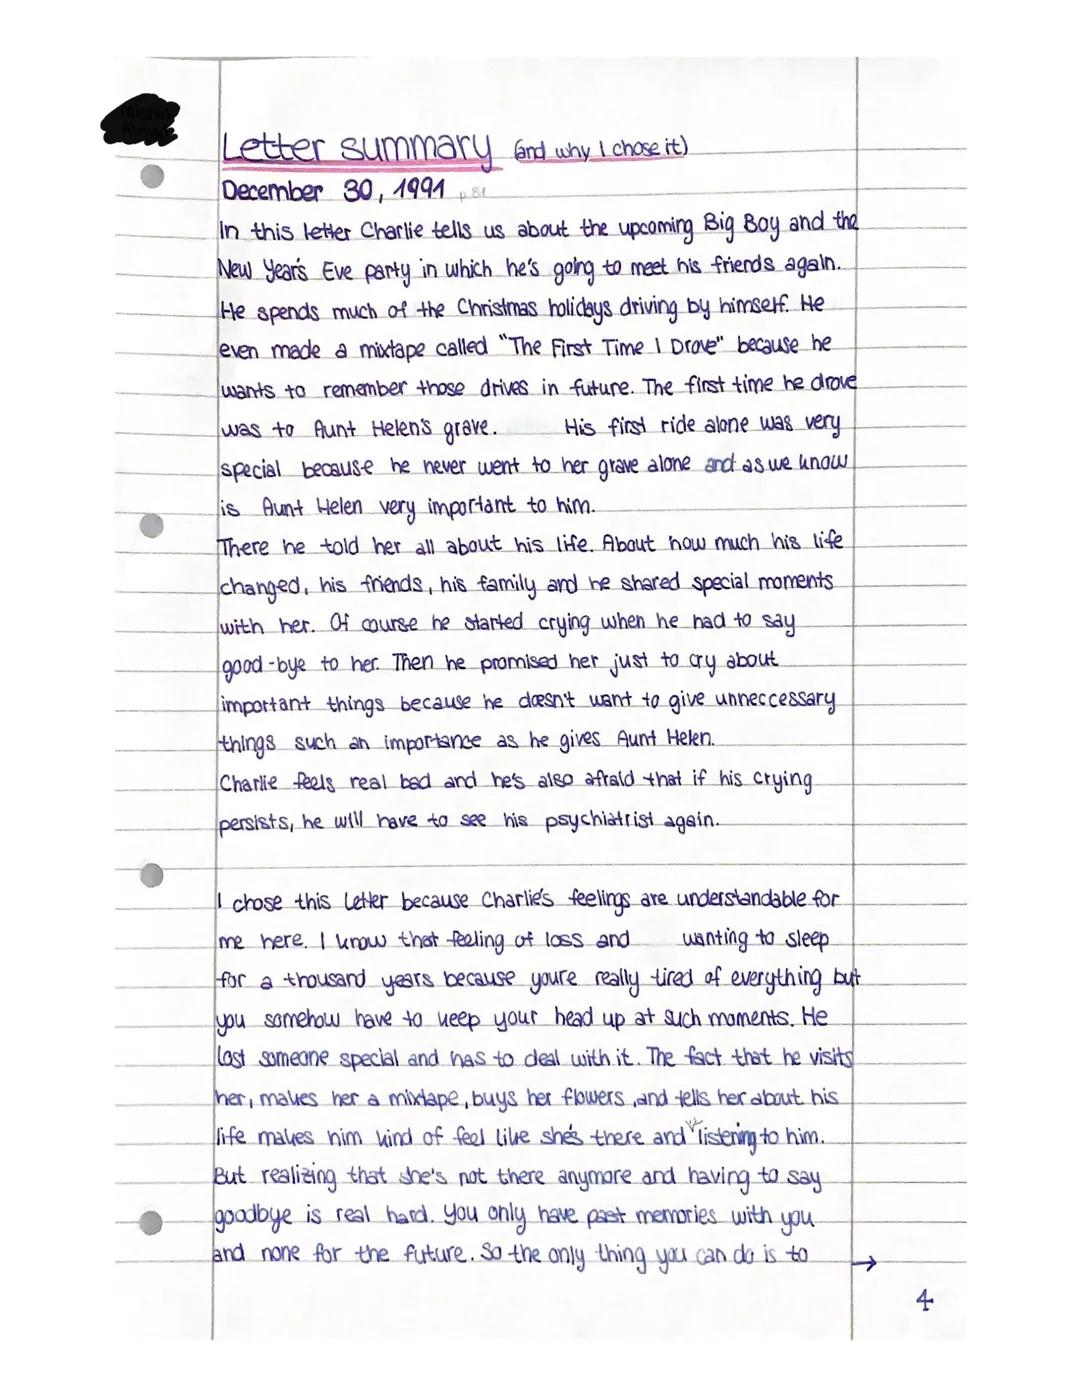 Letter summary (and why I chose it)
December 30, 1991 p.81
In this letter Charlie tells us about the upcoming Big Boy and the
New Year's Eve party in which he's going to meet his friends again.
He spends much of the Christmas holidays driving by himself. He
even made a mixtape called "The First Time I Drove" because he
wants to remember those drives in future. The first time he drove
was to Aunt Helen's grave. His first ride alone was very
special because he never went to her grave alone and as we know
is Aunt Helen very important to him.
There he told her all about his life. About how much his life
changed, his friends, his family and he shared special moments
with her. Of course he started crying when he had to say
good-bye to her. Then he promised her just to cry about
important things because he doesn't want to give unneccessary
things such an importance as he gives Aunt Helen.
Charlie feels real bad and he's also afraid that if his crying
persists, he will have to see his psychiatrist again.
I chose this letter because Charlie's feelings are understandable for
me here. I know that feeling of loss and wanting to sleep
for a thousand years because youre really tired of everything but
you somehow have to keep your head up at such moments. He
lost someone special and has to deal with it. The fact that he visits
her, makes her a mixtape, buys her flowers, and tells her about his
life makes him kind of feel like she's there and listening to him.
But realizing that she's not there anymore and having to say
goodbye is real hard. You only have past memories with you
and none for the future. So the only thing you can do is to →
4